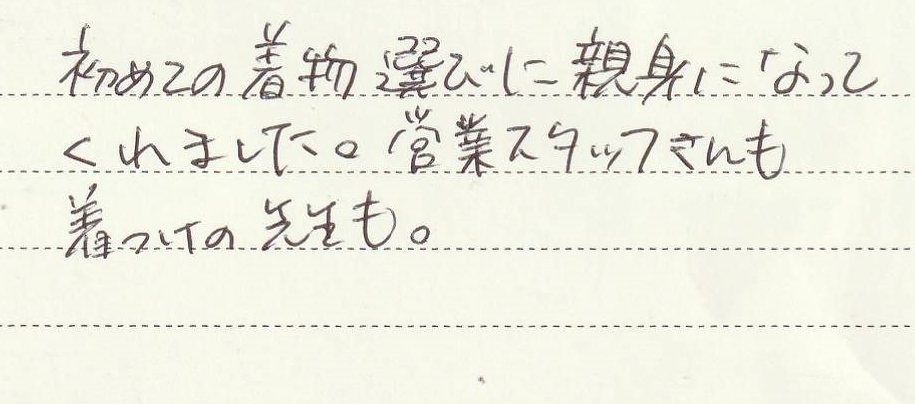 初めての着物選びに親身になって
くれました。営業スタッフさんも
着つけの先生も。